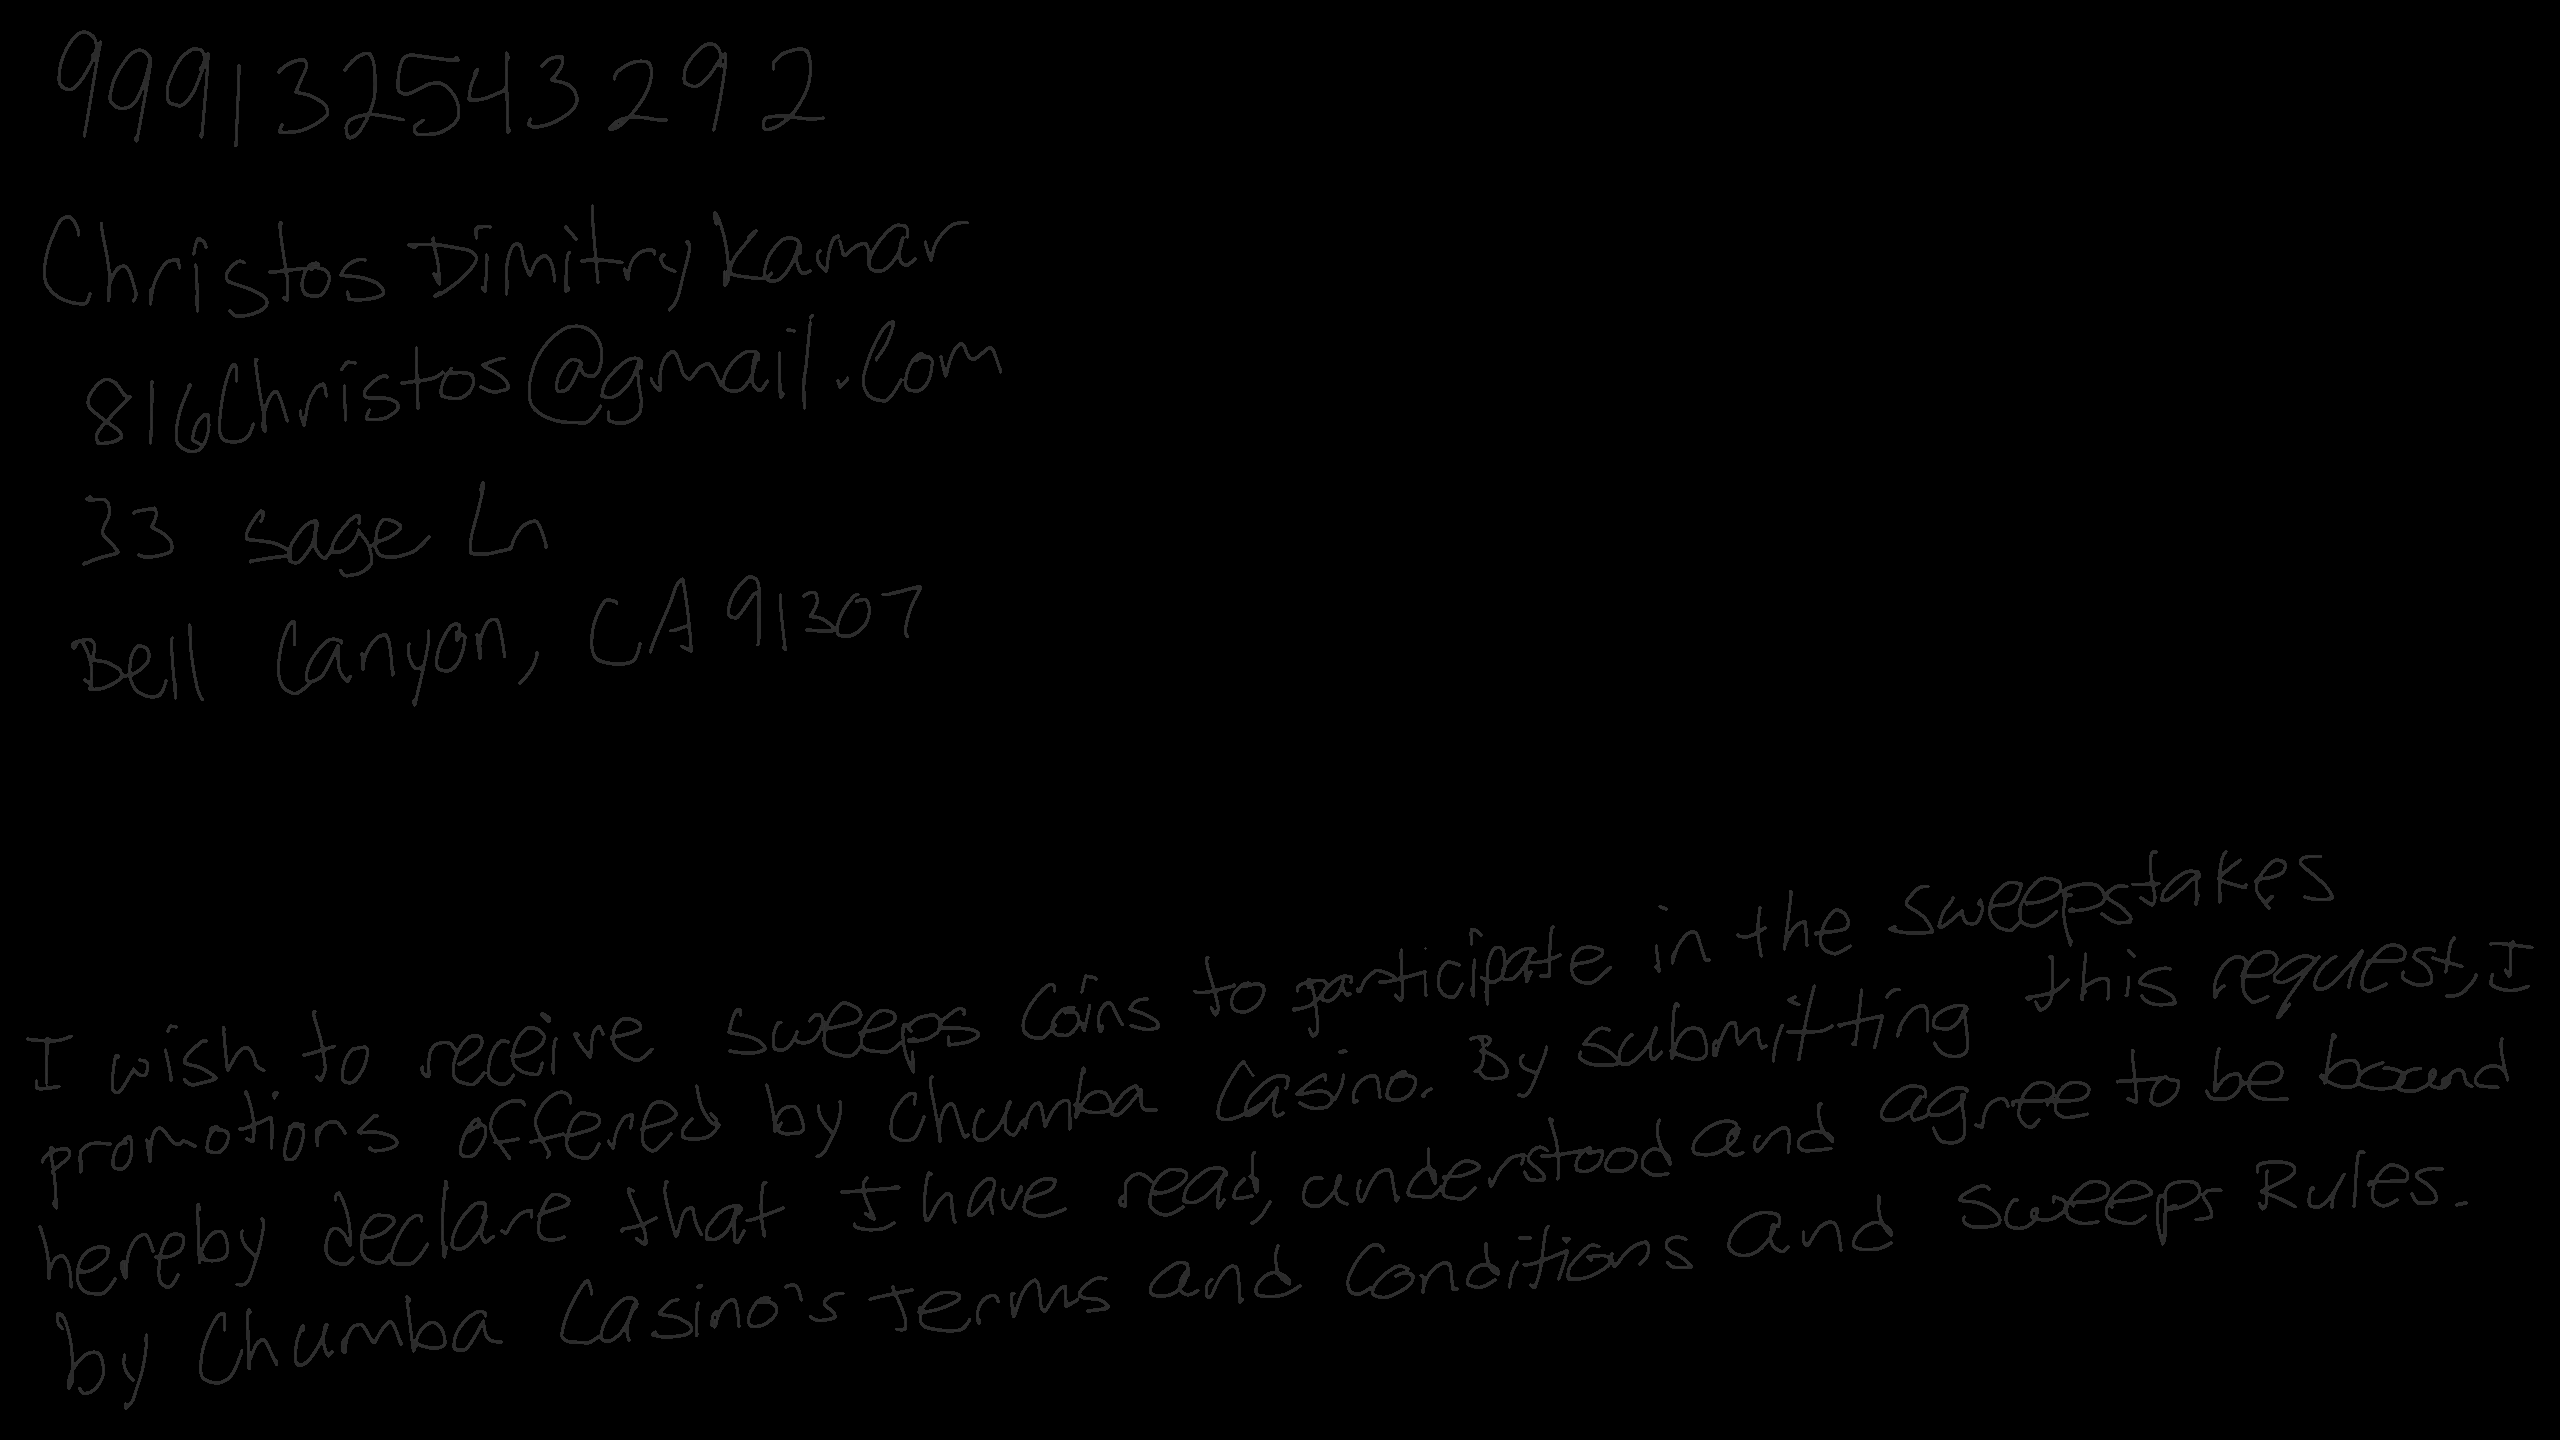 999132543292
Christos Dimitry Kamar
816Christos@gmail.com
33 Sage Ln
Bell Canyon, CA 91307
I wish to receive sweeps coins to participate in the sweepstakes
promotions offered by Chumba Casino. By submitting this request, I
hereby declare that I have read, understood and agree to be bound
by Chumba Casino's Terms and Conditions and Sweeps Rules.